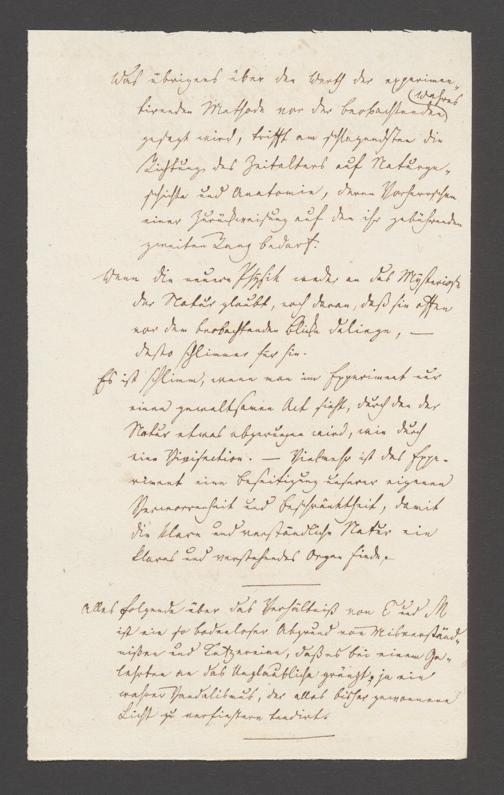 Was übrigens über den Werth der experimen-
tirenden Methode vor der beobachtenden wahres
gesagt wird, trifft am schlagendsten die
Richtung des Zeitalters auf Naturge-
schichte und Anatomie, deren Vorherrschen
einer Zurückweisung auf den ihr gebührenden
zweiten Rang bedarf.
Wenn die neuere Physik weder an das Mysteriöse
der Natur glaubt, noch daran, daß sie offen
vor dem beobachtenden Blicke daliege, —
desto schlimmer für sie.
Es ist schlimm, wenn man im Experiment nur
einen gewaltsamen Act sieht, durch den der
Natur etwas abgezwungen wird, wie durch
eine Vivisection. — Vielmehr ist das Expe-
riment eine Beseitigung unserer eigenen
Verworrenheit und Beschränktheit, damit
die klare und verständliche Natur ein
klares und verstehendes Organ finde.
Alles folgende über das Verhältniß von E und M
ist ein so bodenloser Abgrund von Misverständ-
nissen und, daß es bei einem Ge-
lehrten an das Unglaubliche gränzt, ja ein
wahrer Vandalismus, der alles bisher gewonnene
Licht zu verfinstern tendirt.